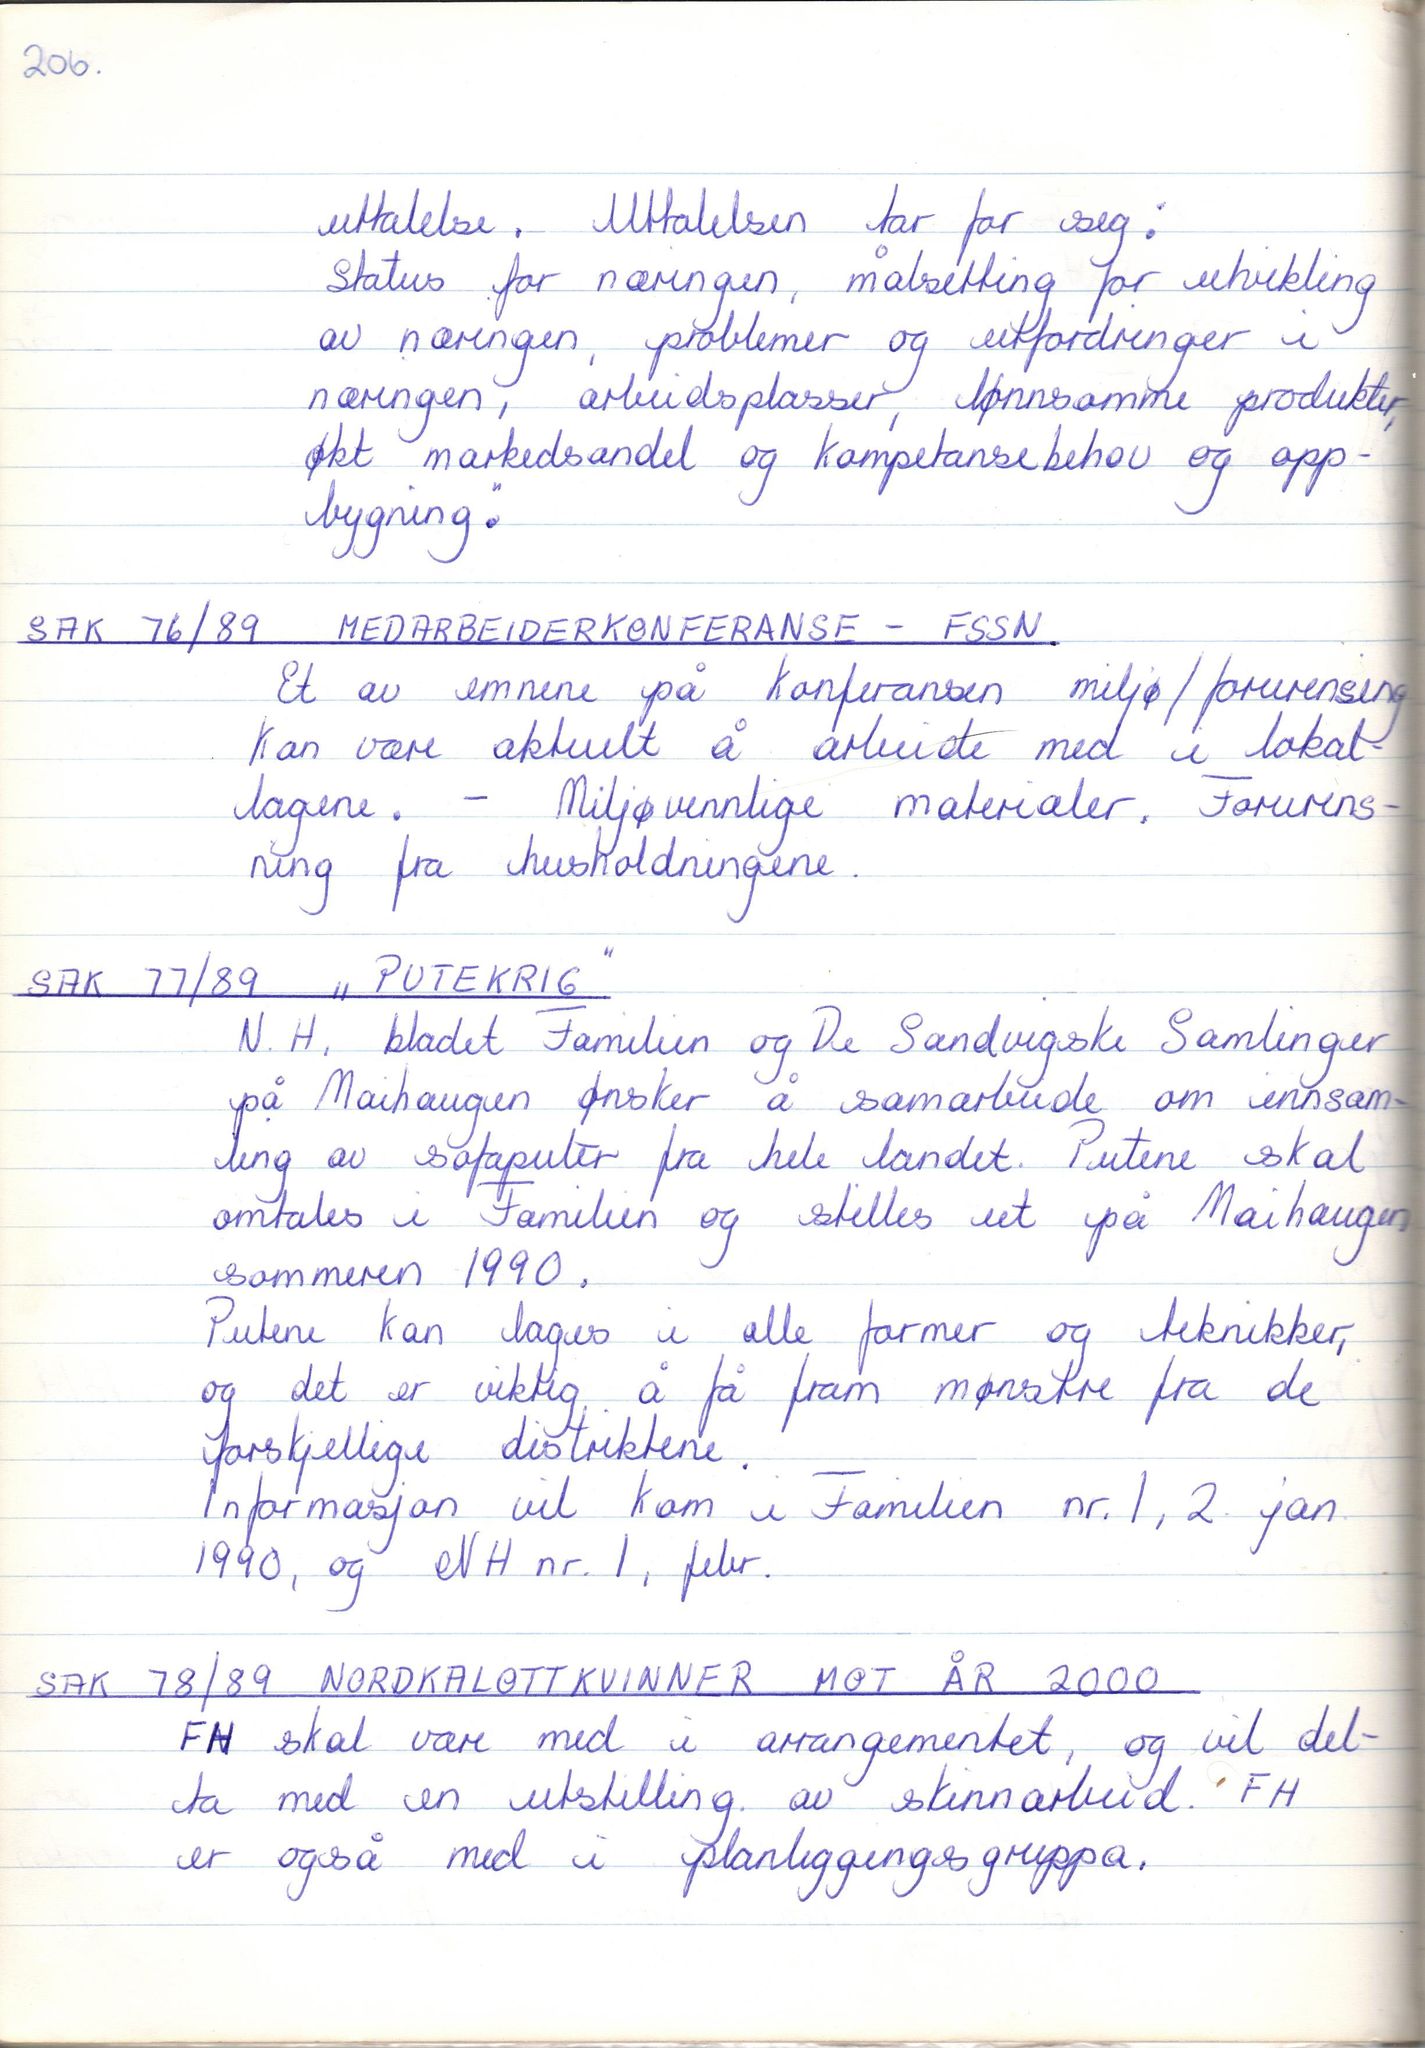 206.
uttalelse. Uttalelsen tar for seg:
Status for næringen, målsetting for utvikling
av næringen, problemer og utfordringer i
næringen, arbeidsplasser, lønnsomme produkter,
økt markedsandel og kompetansebehov og opp-
bygning."
SAK 76/89 MEDARBEIDERKONFERANSE - FSSN.
Et av emnene på konferansen miljø/forurensing
kan være aktuelt å arbeide med i lokal-
lagene. - Miljøvennlige materialer. Forurens-
ning fra husholdningene.
SAK 77/89 „PUTEKRIG"
N.H, bladet Familien og De Sandvigske Samlinger
på Maihaugen ønsker å samarbeide om innsam-
ling av sofaputer fra hele landet. Putene skal
omtales i Familien og stilles ut på Maihaugen
sommeren 1990.
Putene kan lages i alle former og teknikker,
og det er viktig å få fram mønstre fra de
forskjellige distriktene.
Informasjon vil kom i Familien nr. 1, 2. jan
1990, og NH nr. 1, febr.
SAK 78/89 NORDKALOTTKVINNER MOT ÅR 2000
FH skal være med i arrangementet, og vil del-
ta med en utstilling av skinnarbeid. FH
er også med i planleggingsgruppa.